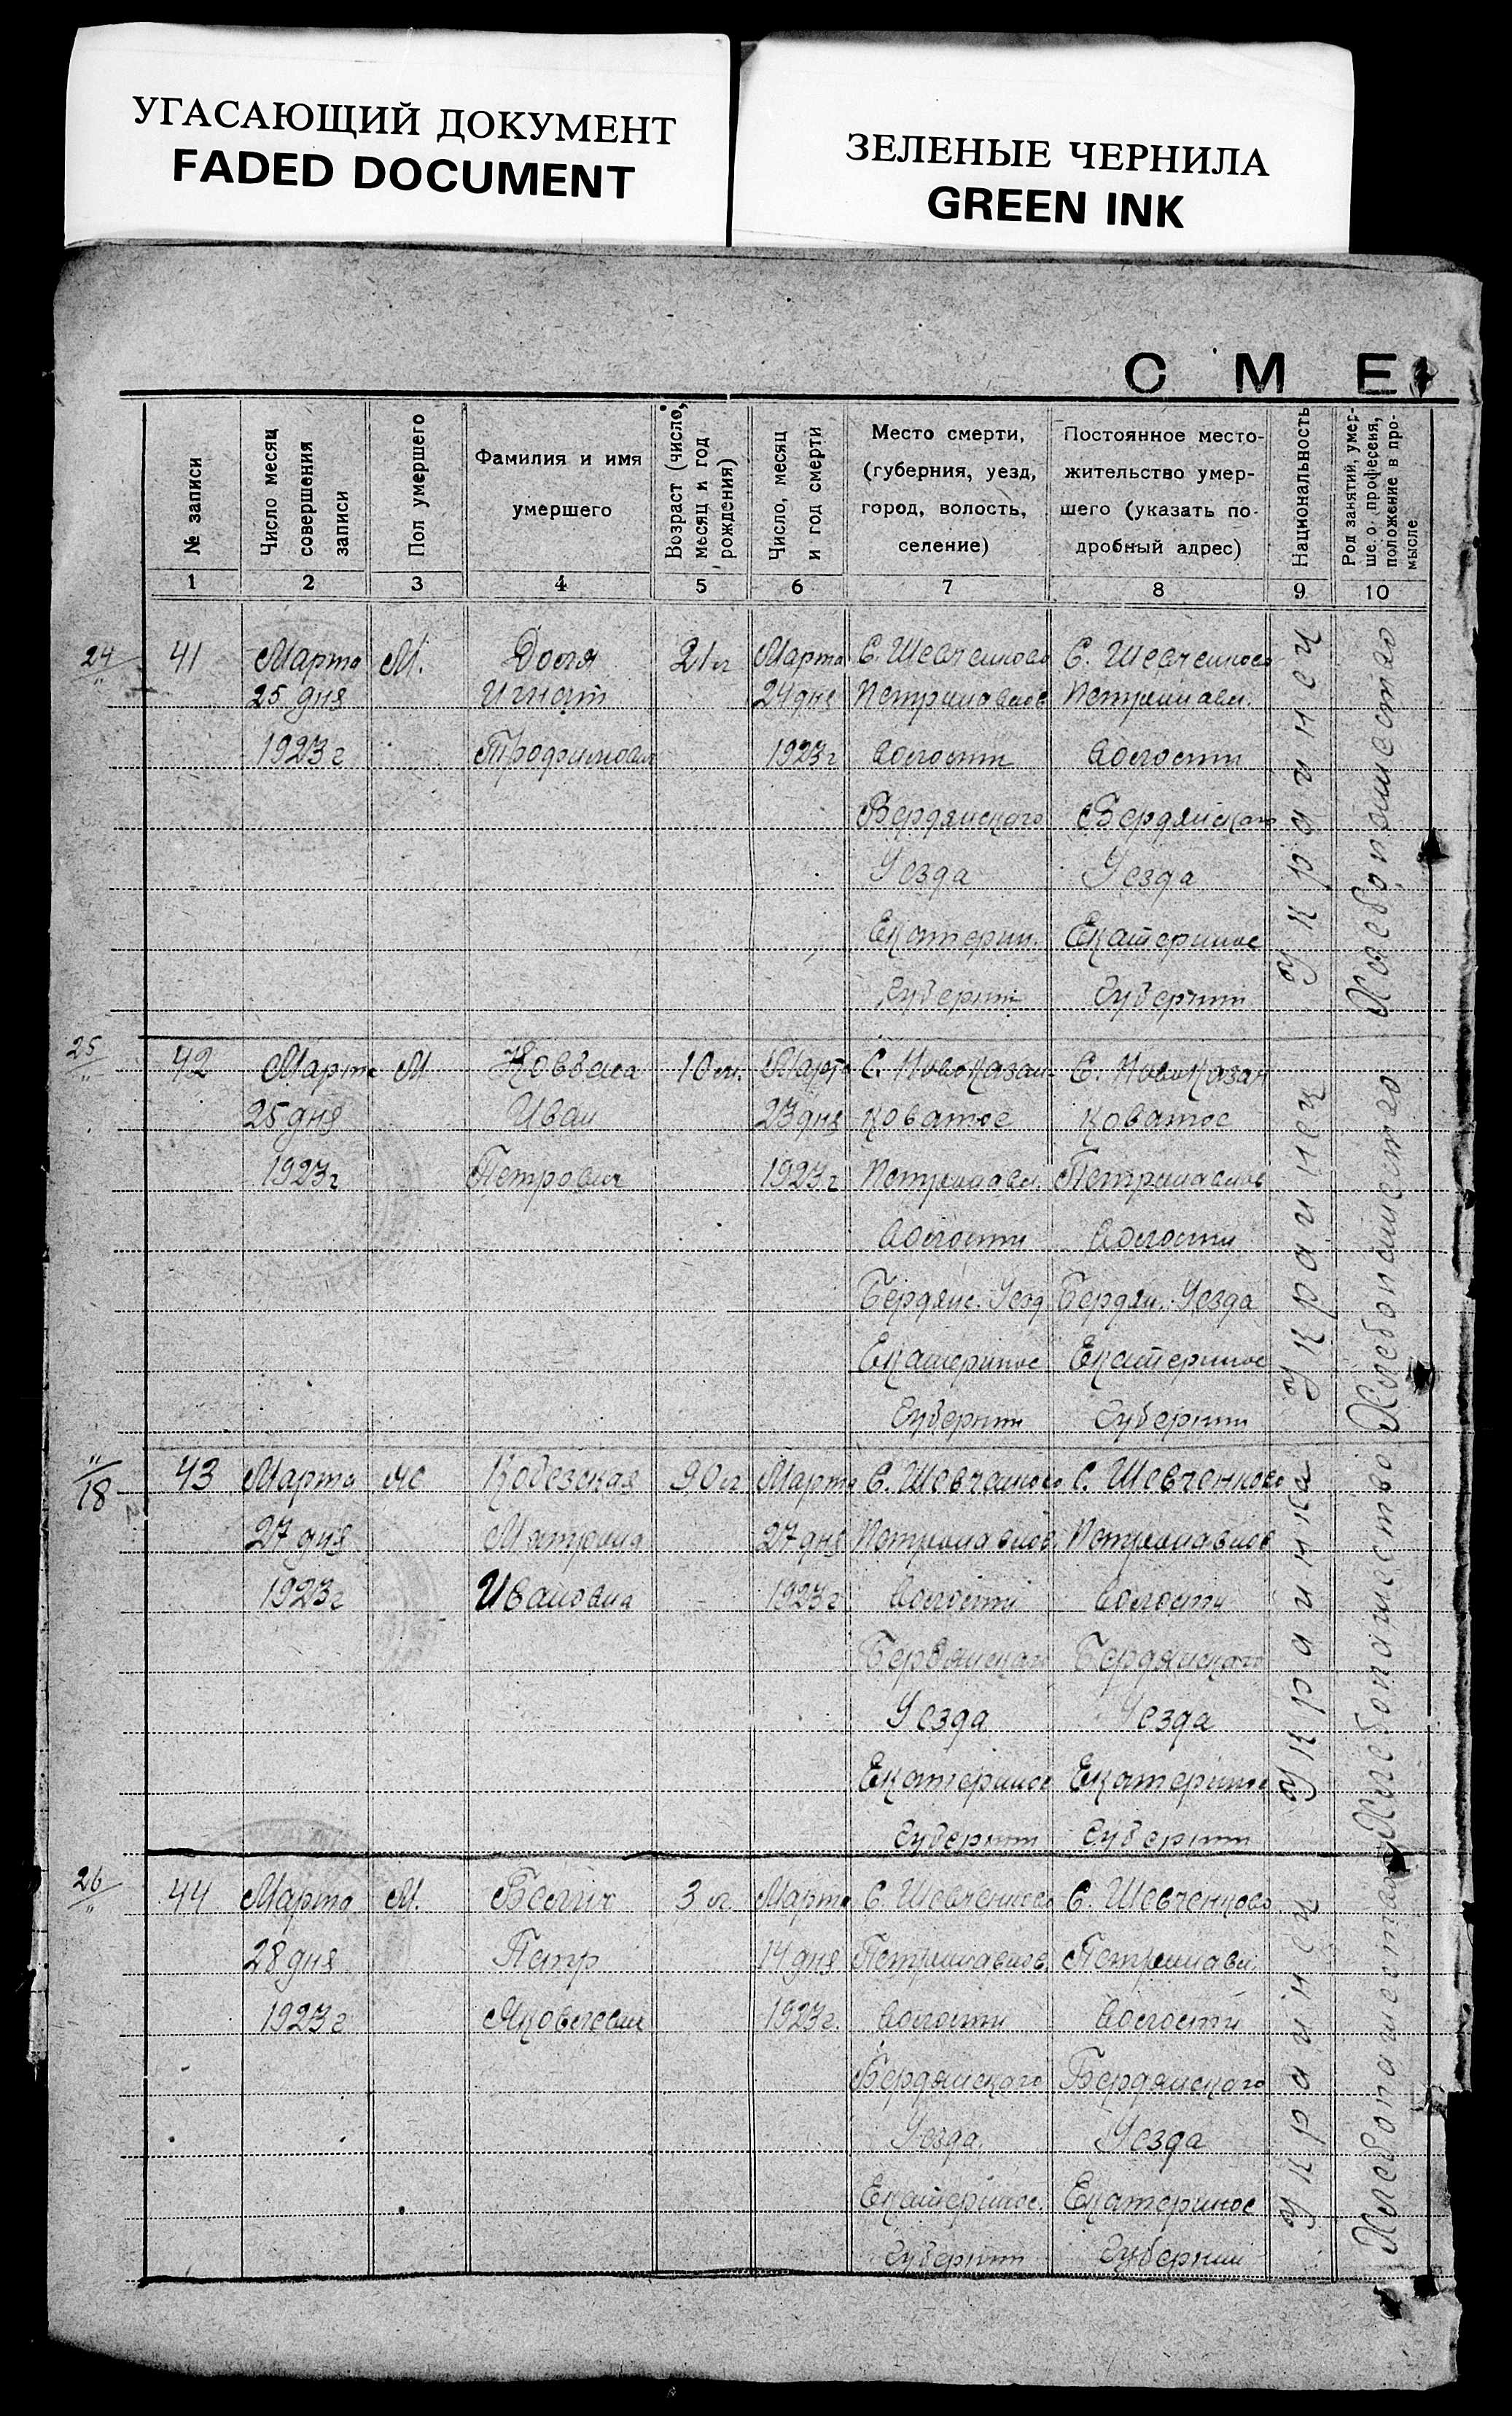 УГАСАЮЩИЙ ДОКУМЕНТ
FADED DOCUMENT
ЗЕЛЕНЫЕ ЧЕРНИЛА
GREEN INK
С М Е
№ записи
Число месяц совершения записи
Пол умершего
Фамилия и имя умершего
Возраст (число, месяц и год рождения)
Число, месяц и год смерти
Место смерти, (губерния, уезд, город, волость, селение)
Постоянное место-жительство умер-шего (указать по-дробный адрес)
Национальность
Род занятий, умер-ше.о. профессия, положение в про-мысле
1 2 3 4 5 6 7 8 9 10
24 41 Марта М. Доля 21 г Марта С. Шевченково С. Шевченково
25 дня Игнат 24 дня
1923 г Трофимович 1923 г волости волости
Бердянского Бердянского
Уезда Уезда
Екатерин. Екатеринос
Губернии Губернии
Украинец
Хлебопашество
25 42 Марта М Ковбаса 10 м. Марта С. Новоказан- С. Новоказан
25 дня Иван 23 дня коватое коватое
1923 г Петрович 1923 г
волости волости
Бердянс. Уезд Бердян. Уезда
Екатеринос Екатеринос
Губернии Губернии
Украинец
Хлебопашество
18 43 Марта Ж 90 г Марта С. Шевченково С. Шевченково
27 дня Матрона 27 дня
1923 г Ивановна 1923 г волости волости
Бердянского Бердянского
Уезда Уезда
Екатеринос Екатеринос
Губернии Губернии
Украинка
Хлебопашество
26 44 Марта М. 3 г Марта С. Шевченково С. Шевченково
28 дня Петр 14 дня
1923 г Яковлевич 1923 г. волости волости
Бердянского Бердянского
Уезда. Уезда
Екатеринос. Екатеринос
Губернии Губернии
Украинец
Хлебопашество